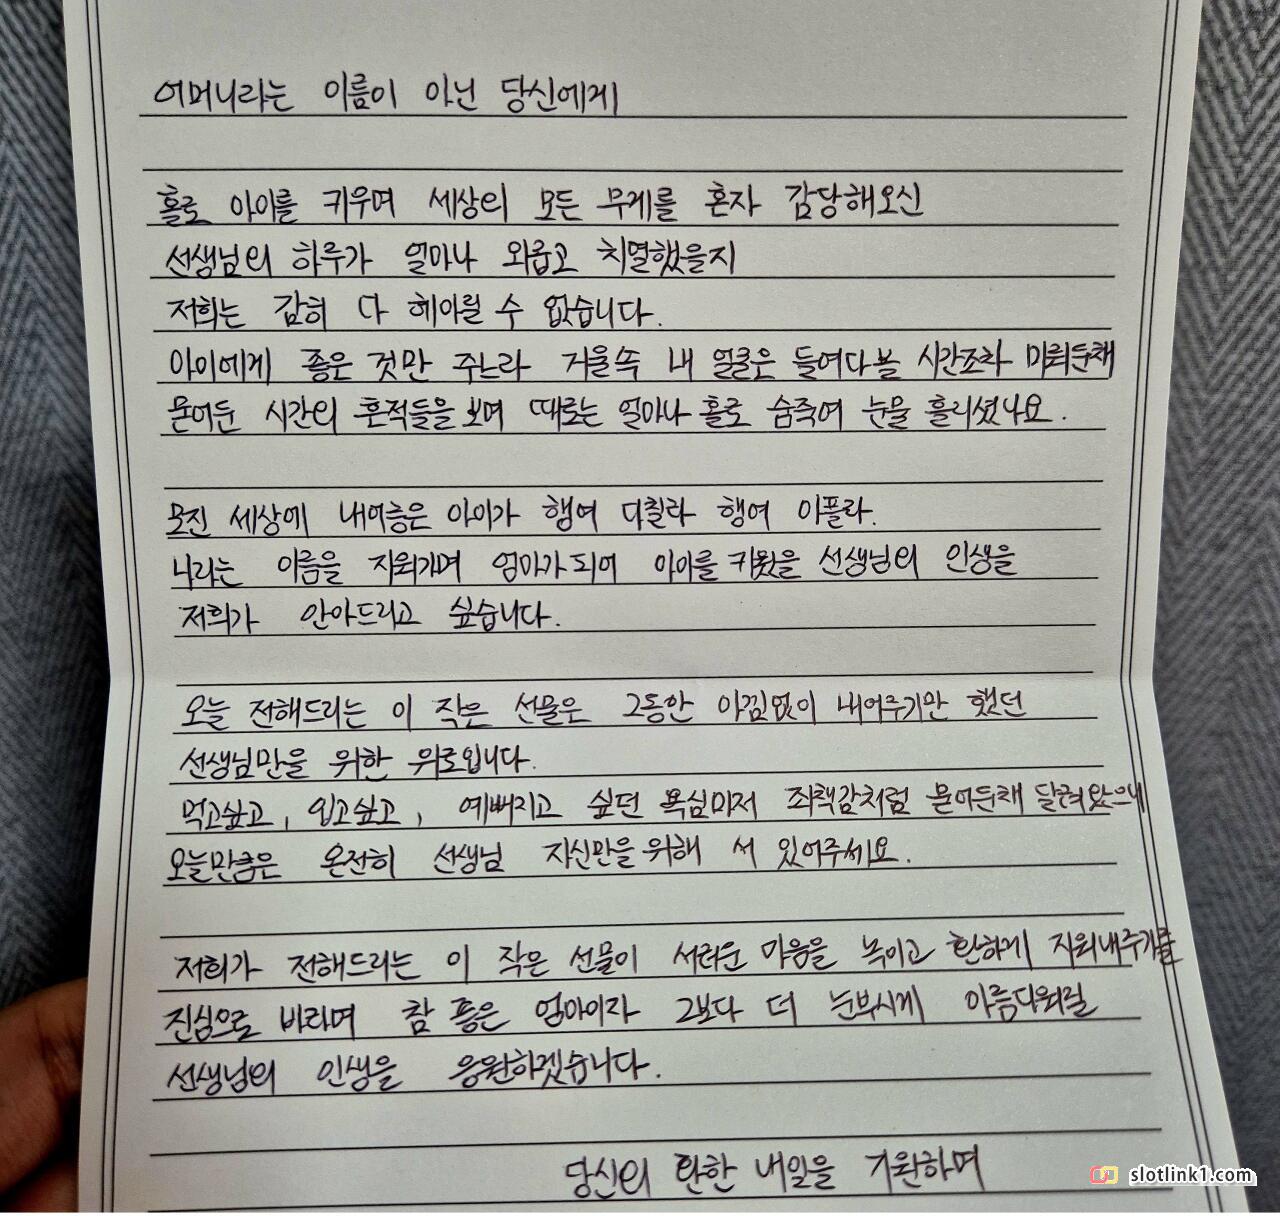 어머니라는 이름이 아닌 당신에게
홀로 아이를 키우며 세상의 모든 무게를 혼자 감당해오신
선생님의 하루가 얼마나 외롭고 치열했을지
저희는 감히 다 헤아릴 수 없습니다.
아이에게 좋은 것만 주느라 거울속 내 얼굴은 들여다볼 시간조차 미뤄둔채
묻어둔 시간의 흔적들을 보며 때로는 얼마나 홀로 숨죽여 눈물 흘리셨나요.
모진 세상에 내여놓은 아이가 행여 다칠라 행여 아플라.
나라는 이름을 지워가며 엄마가 되어 아이를 키웠을 선생님의 인생을
저희가 안아드리고 싶습니다.
오늘 전해드리는 이 작은 선물은 그동안 아낌없이 내어주기만 했던
선생님만을 위한 위로입니다.
먹고싶고, 입고싶고, 예뻐지고 싶던 욕심마저 죄책감처럼 묻어둔채 달려왔으니
오늘만큼은 온전히 선생님 자신만을 위해 서 있어주세요.
저희가 전해드리는 이 작은 선물이 서러운 마음을 녹이고 환하게 지워내주기를
진심으로 바라며 참 좋은 엄마이자 그보다 더 눈부시게 아름다워질
선생님의 인생을 응원하겠습니다.
당신의 환한 내일을 기원하며
slotlink1.com